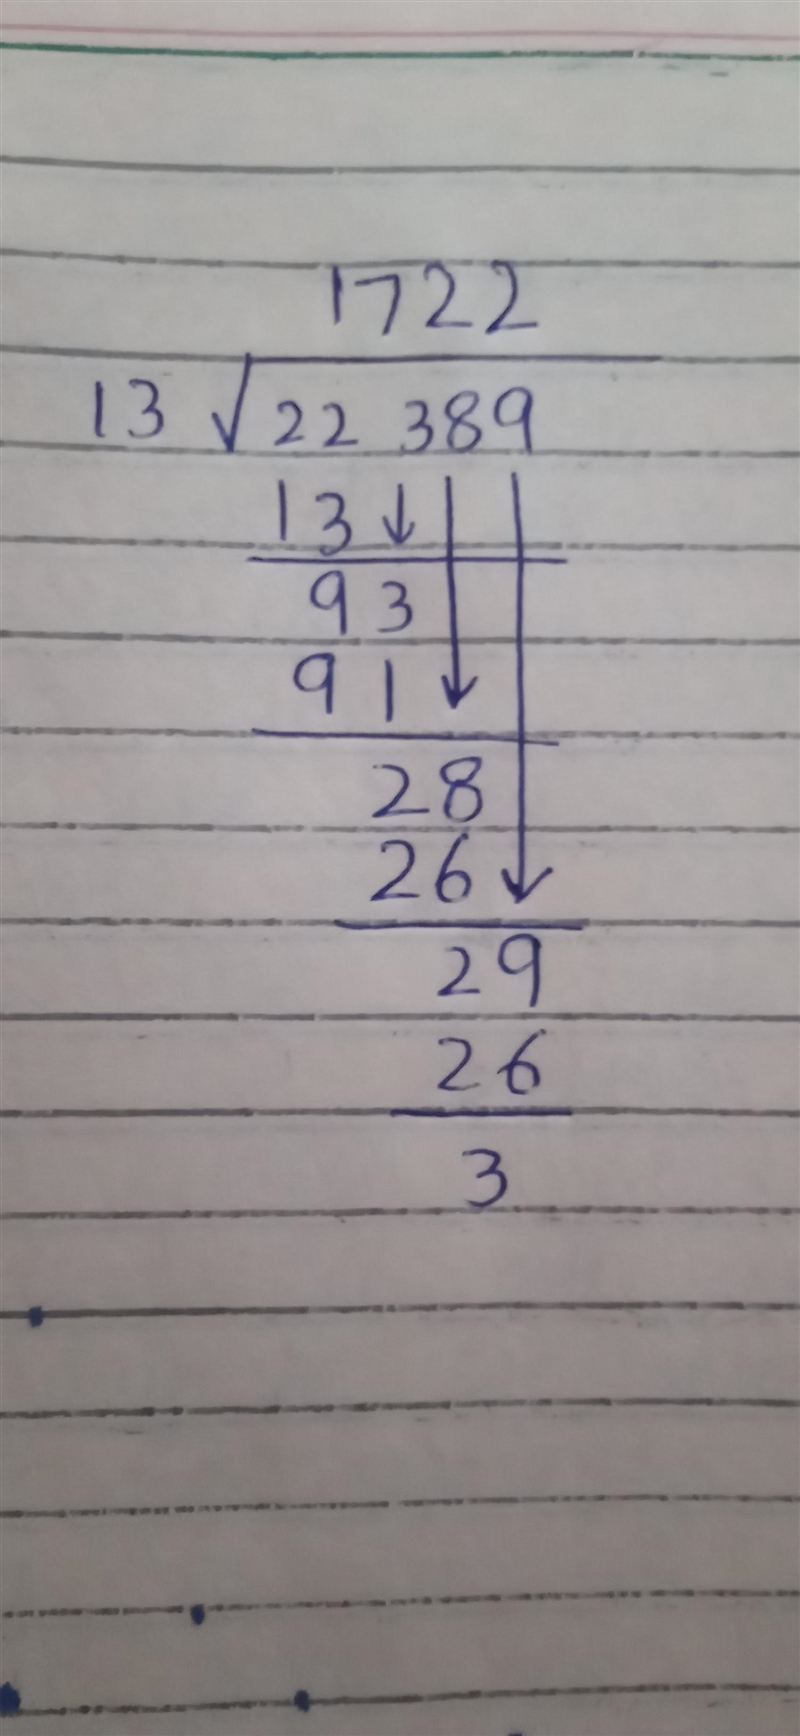 1722
13 √22 389
13↓
93
91
28
26
29
26
3